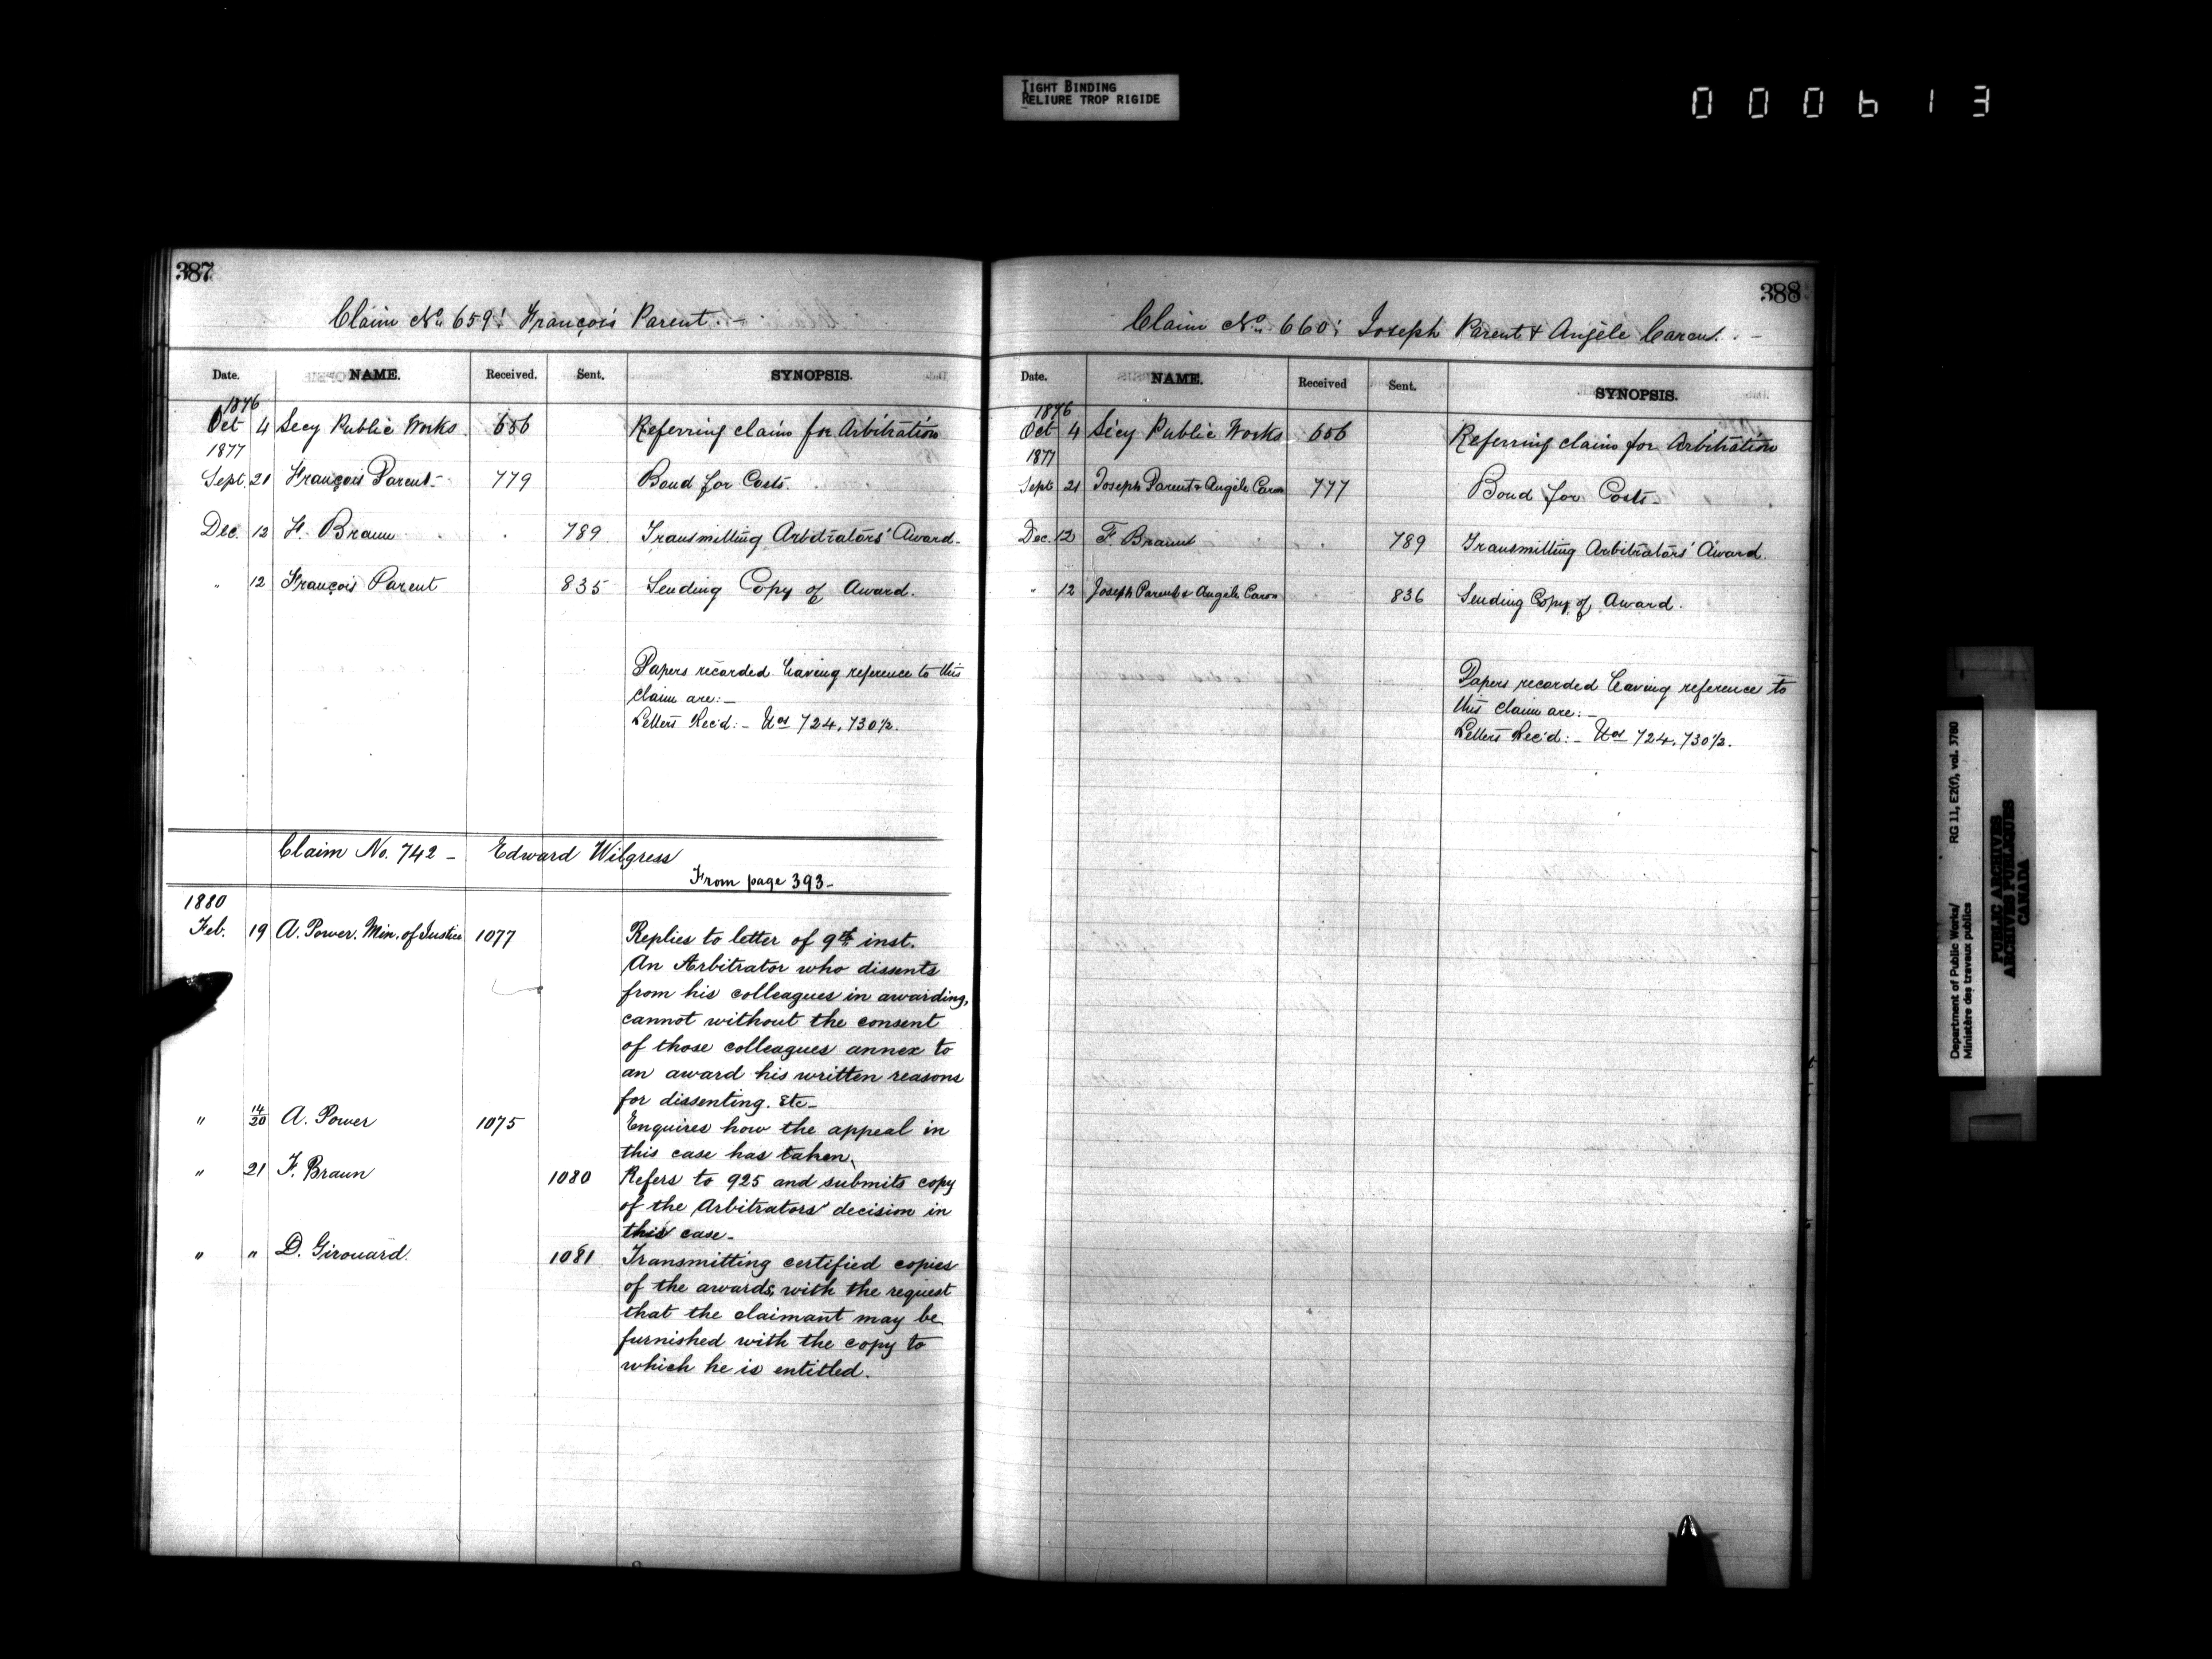 TIGHT BINDING
RELIURE TROP RIGIDE
000613
387
Claim No. 659: François Parent -
Date. NAME. Received. Sent. SYNOPSIS.
1876
Oct 4 Secy Public Works 656 Referring claim for Arbitration
1877
Sept. 21 François Parent - 779 Bond for Costs.
Dec. 12 F. Braun 789 Transmitting Arbitrators' Award -
" 12 François Parent 835 Sending Copy of Award.
Papers recorded having reference to this
claim are: -
Letters Rec'd: - Nos 724, 730½.
Claim No. 742 - Edward Wilgress
From page 393 -
1880
Feb. 19 A. Power. Min. of Justice 1077 Replies to letter of 9th inst.
An Arbitrator who dissents
from his colleagues in awarding,
cannot without the consent
of those colleagues annex to
an award his written reasons
for dissenting. Etc -
" 14/20 A. Power 1075 Enquires how the appeal in
this case has taken.
" 21 F. Braun 1080 Refers to 925 and submits copy
of the Arbitrators' decision in
this case -
" " D. Girouard. 1081 Transmitting certified copies
of the awards, with the request
that the claimant may be
furnished with the copy to
which he is entitled.
388
Claim No. 660: Joseph Parent & Angèle Caron. -
Date. NAME. Received Sent. SYNOPSIS.
1876
Oct 4 Secy Public Works 656 Referring claim for Arbitration
1877
Sept 21 Joseph Parent & Angèle Caron 777 Bond for Costs -
Dec. 12 F. Braun 789 Transmitting Arbitrators' Award.
" 12 Joseph Parent & Angèle Caron 836 Sending Copy of Award.
Papers recorded having reference to
this claim are: -
Letters Rec'd: - Nos 724, 730½.
Department of Public Works/ RG 11, E2(f), vol. 3780
Ministère des travaux publics
PUBLIC ARCHIVES
ARCHIVES PUBLIQUES
CANADA